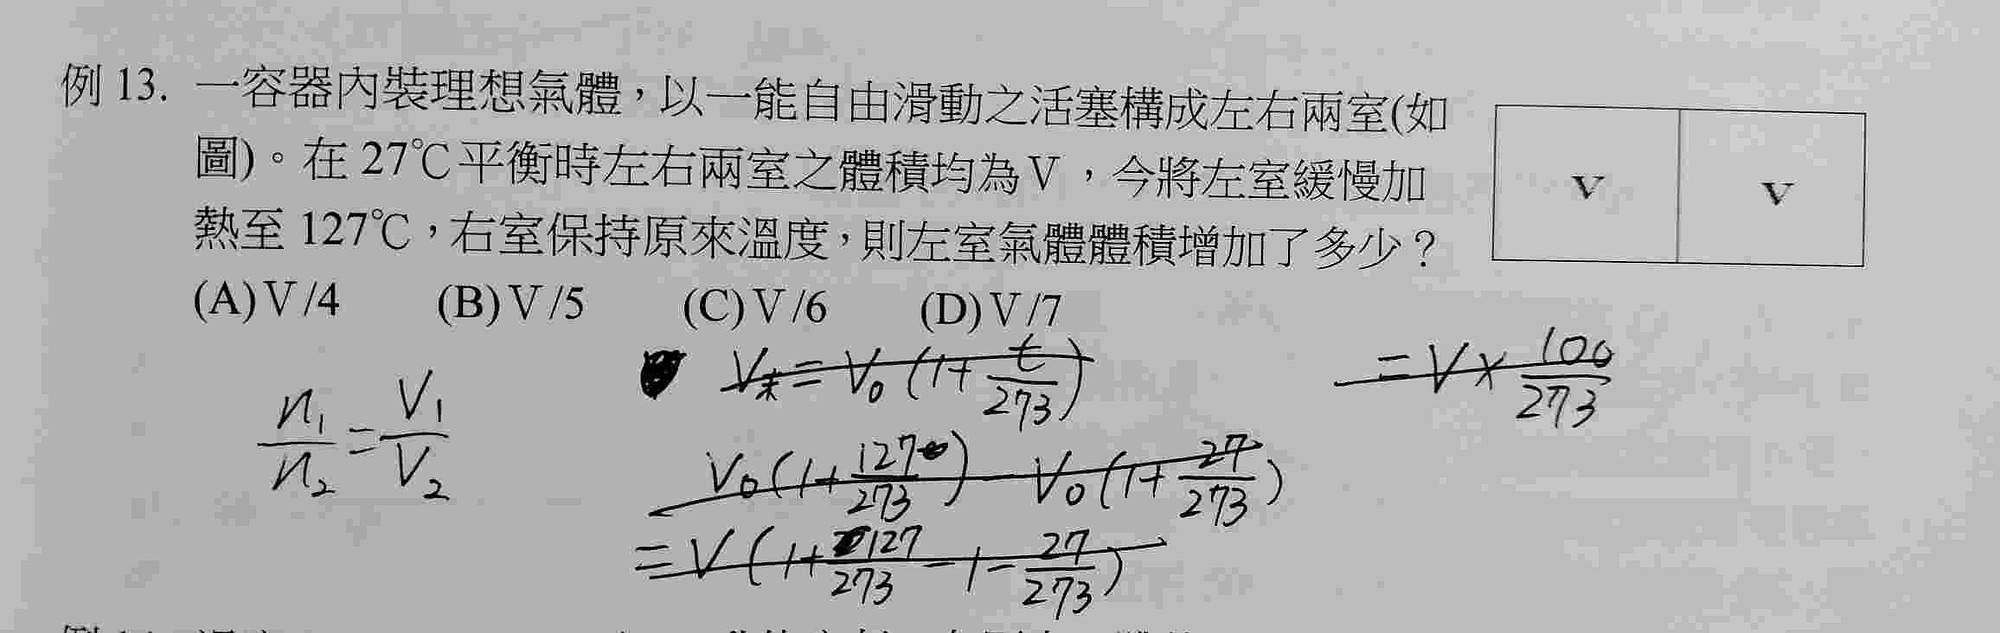 例 13. 一容器內裝理想氣體，以一能自由滑動之活塞構成左右兩室(如
圖)。在 27℃平衡時左右兩室之體積均為V，今將左室緩慢加
熱至 127℃，右室保持原來溫度，則左室氣體體積增加了多少？
(A)V/4 (B)V/5 (C)V/6 (D)V/7
V V
n₁/n₂ = V₁/V₂
V末 = V₀(1+t/273)
V₀(1+127/273) - V₀(1+27/273)
= V(1+127/273 - 1 - 27/273)
= V × 100/273